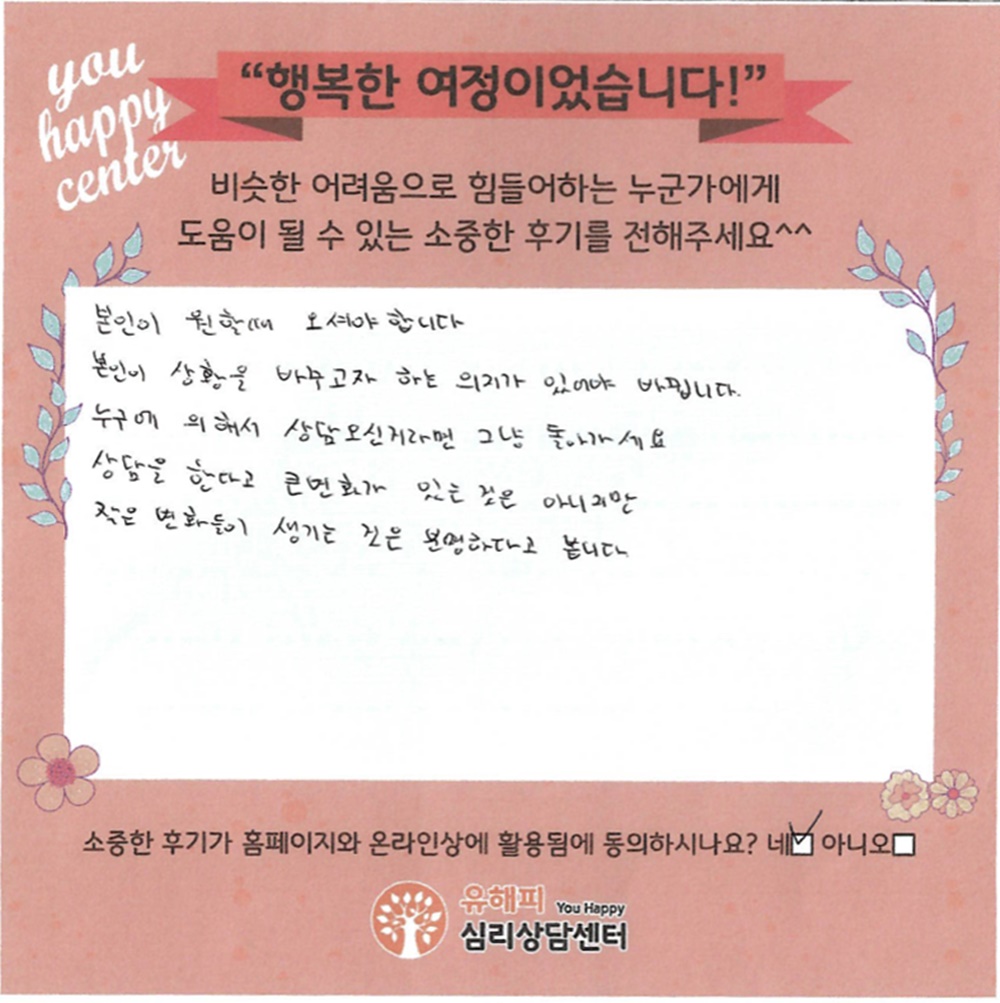 you
happy
center
“행복한 여정이었습니다!”
비슷한 어려움으로 힘들어하는 누군가에게
도움이 될 수 있는 소중한 후기를 전해주세요^^
본인이 원할때 오셔야 합니다
본인이 상황을 바꾸고자 하는 의지가 있어야 바뀝니다.
누구에 의해서 상담오신거라면 그냥 돌아가세요
상담을 한다고 큰변화가 있는 것은 아니지만
작은 변화들이 생기는 것은 분명하다고 봅니다.
소중한 후기가 홈페이지와 온라인상에 활용됨에 동의하시나요? 네 아니오
유해피 You Happy
심리상담센터